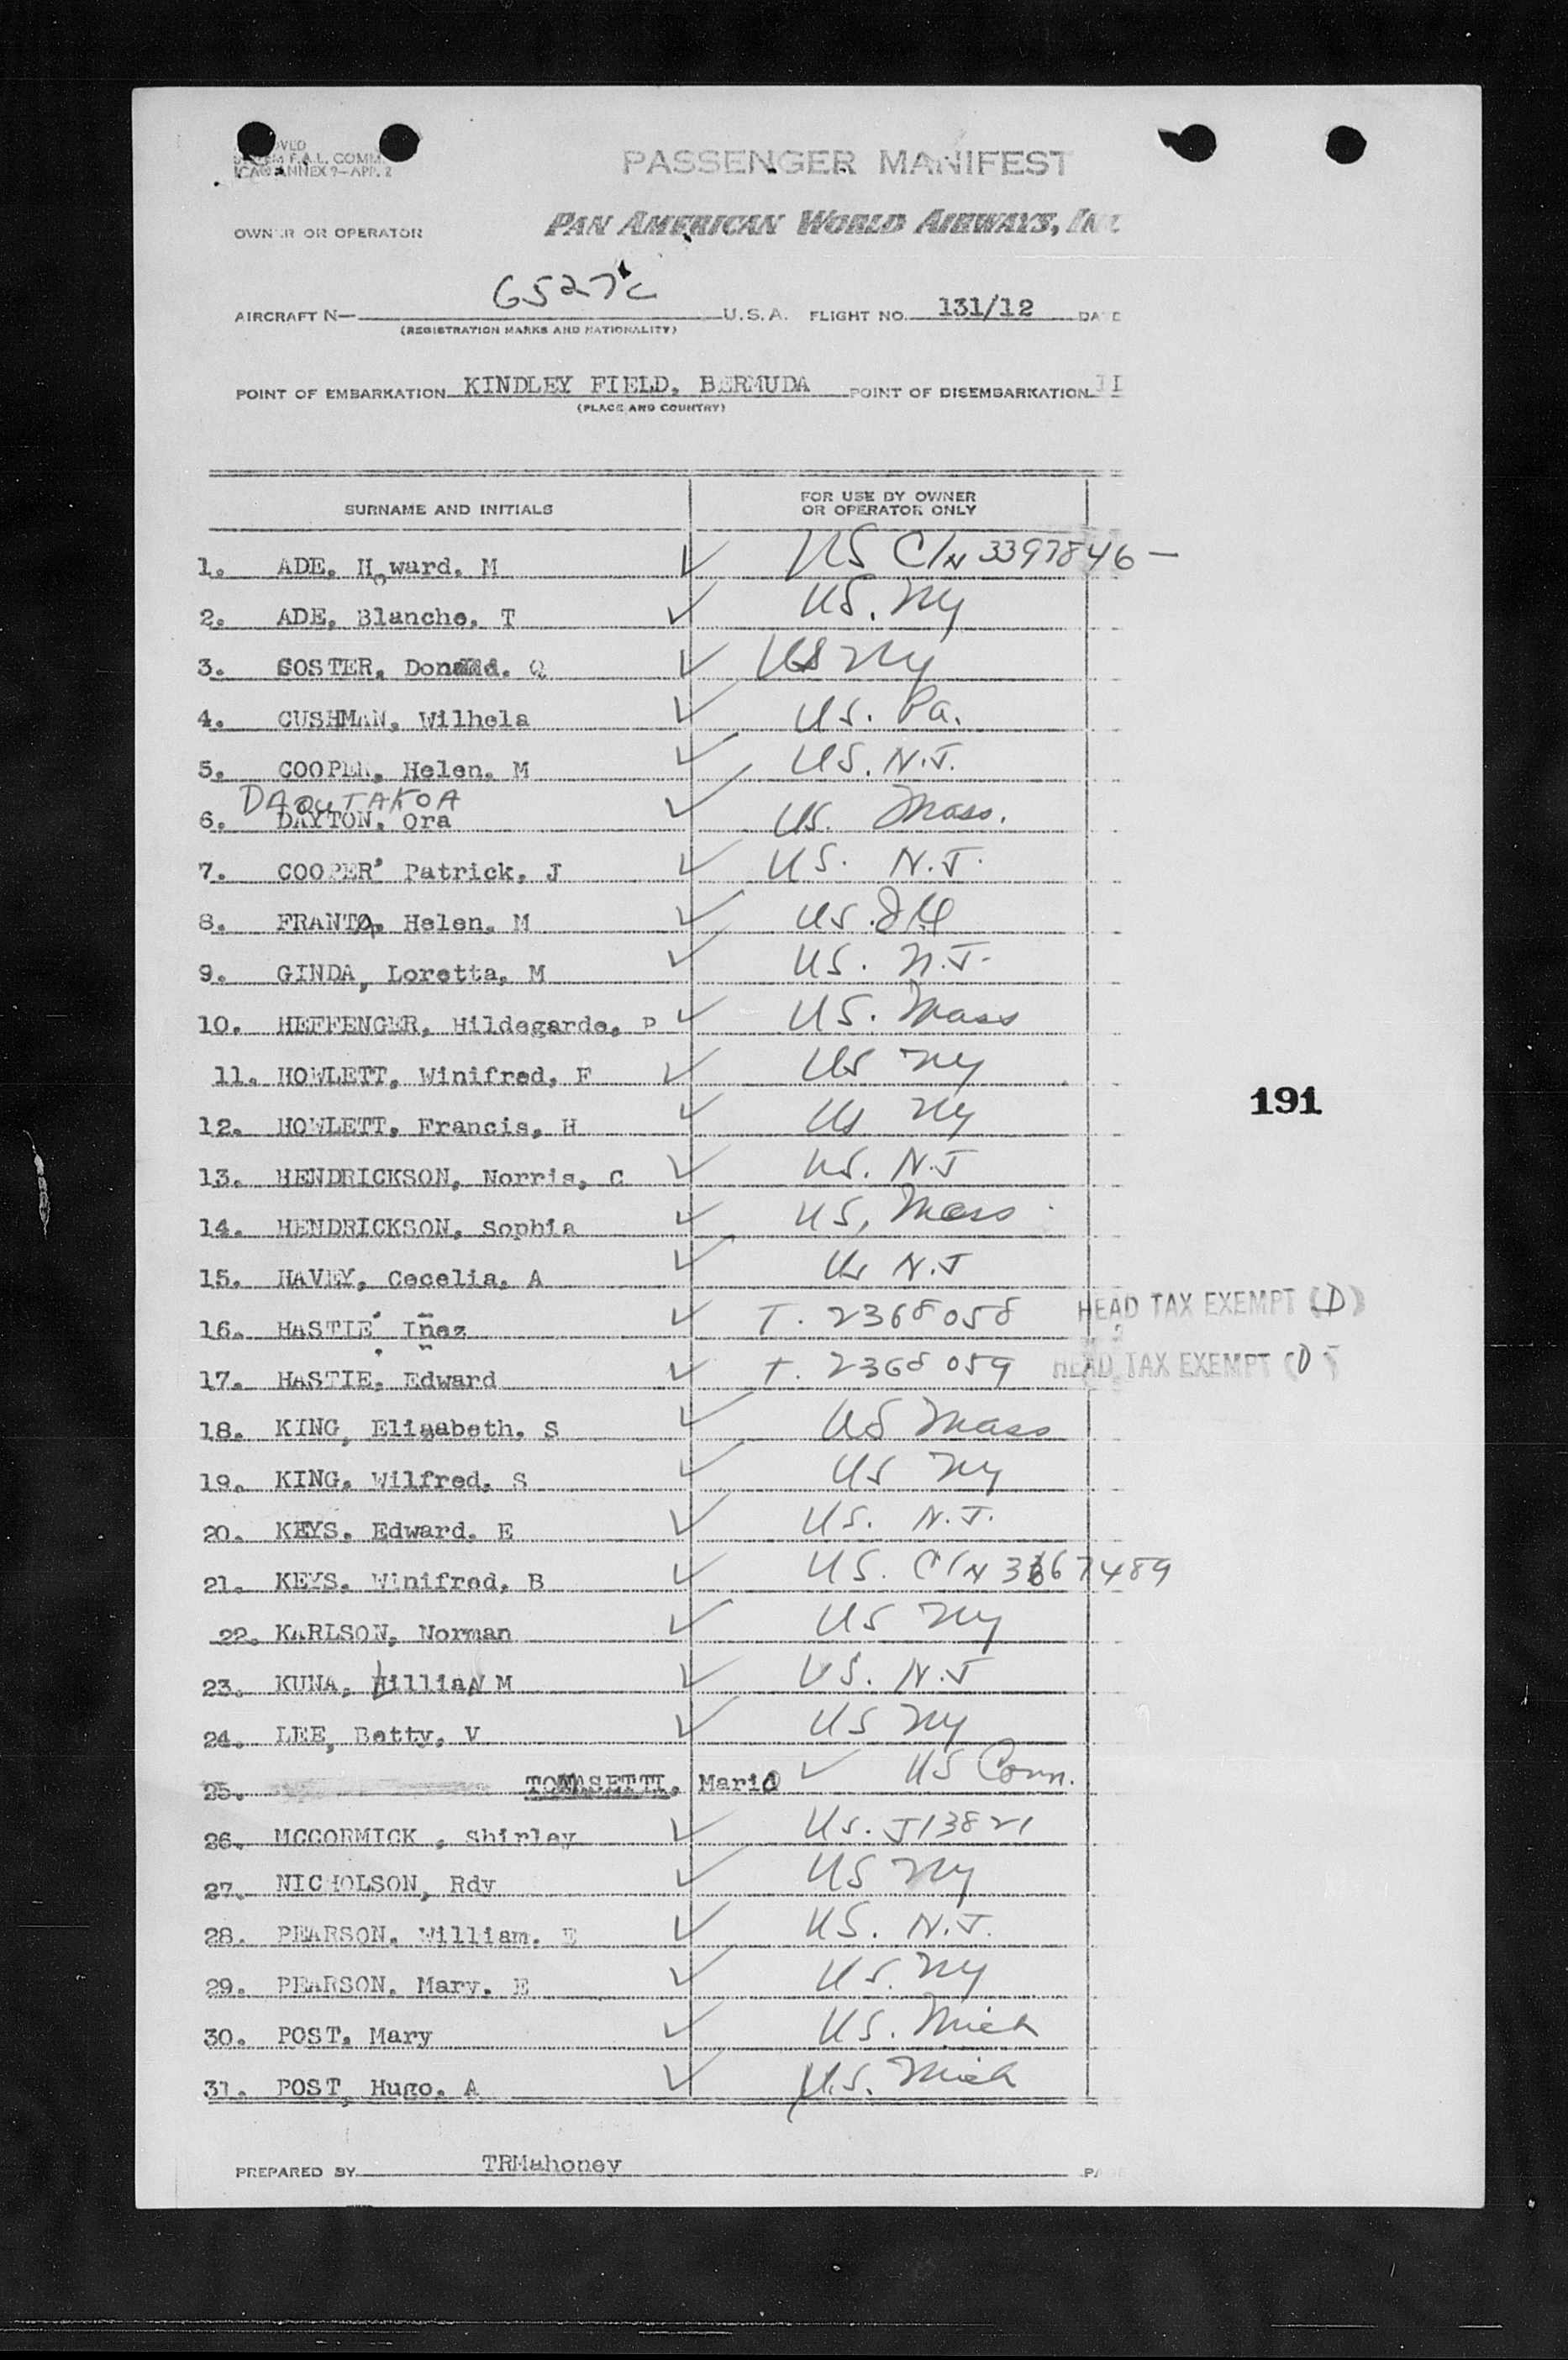 PASSENGER MANIFEST
F.A.L. COMM.
ICAO ANNEX 9—APP. 2
OWNER OR OPERATOR PAN AMERICAN WORLD AIRWAYS, INC
AIRCRAFT N— 6527C U.S.A. FLIGHT NO. 131/12 DATE
(REGISTRATION MARKS AND NATIONALITY)
POINT OF EMBARKATION KINDLEY FIELD, BERMUDA POINT OF DISEMBARKATION
(PLACE AND COUNTRY)
SURNAME AND INITIALS FOR USE BY OWNER
OR OPERATOR ONLY
1. ADE, Howard, M ✓ US C/N 3397846 —
2. ADE, Blanche, T ✓ US. NY
3. COSTER, Donald. Q ✓ US NY
4. CUSHMAN, Wilhela ✓ US. Pa.
5. COOPER, Helen. M ✓ US. N.J.
6. DAYTON, Ora ✓ US. Mass.
7. COOPER Patrick, J ✓ US. N.J.
8. FRANTO, Helen. M ✓ US. Ill
9. GINDA, Loretta, M ✓ US. N.J.
10. HEFFENGER, Hildegarde, P ✓ US. Mass
11. HOWLETT, Winifred, F ✓ US NY
12. HOWLETT, Francis, H ✓ US NY
13. HENDRICKSON, Norris, C ✓ US. N.J
14. HENDRICKSON, Sophia ✓ US, Mass
15. HAVEY, Cecelia, A ✓ US N.J
16. HASTIE Iñez ✓ T. 2368058 HEAD TAX EXEMPT (D)
17. HASTIE, Edward ✓ T. 2368059 HEAD TAX EXEMPT (D)
18. KING, Elisabeth, S ✓ US Mass
191
19. KING, Wilfred, S ✓ US NY
20. KEYS, Edward, E ✓ US. N.J.
21. KEYS, Winifred, B ✓ US. C/N 3367489
22. KARLSON, Norman ✓ US NY
23. KUNA, LilliaN M ✓ US. N.J
24. LEE, Betty, V ✓ US NY
25. TOMASETTI, Mario ✓ US Conn.
26. MCCORMICK, Shirley ✓ US. J13821
27. NICHOLSON, Rdy ✓ US NY
28. PEARSON, William. E ✓ US. N.J.
29. PEARSON, Mary. E ✓ US. NY
30. POST, Mary ✓ US. Mich
31. POST, Hugo. A ✓ U.S. Mich
PREPARED BY TRMahoney